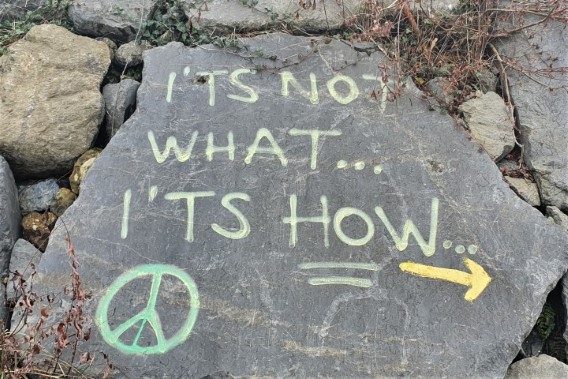 I'TS NOT
WHAT...
I'TS HOW...